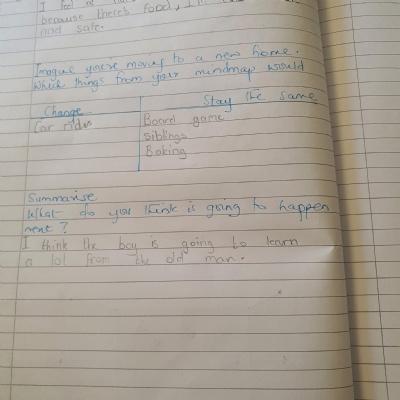 I feel at
because there's food, I'm
and safe.
Imagine you're moving to a new home.
Which things from your mindmap would
Change
Stay the same
Car rides
Board game
siblings
Baking
Summarise
What do you think is going to happen
next?
I think the boy is going to learn
a lot from the old man.